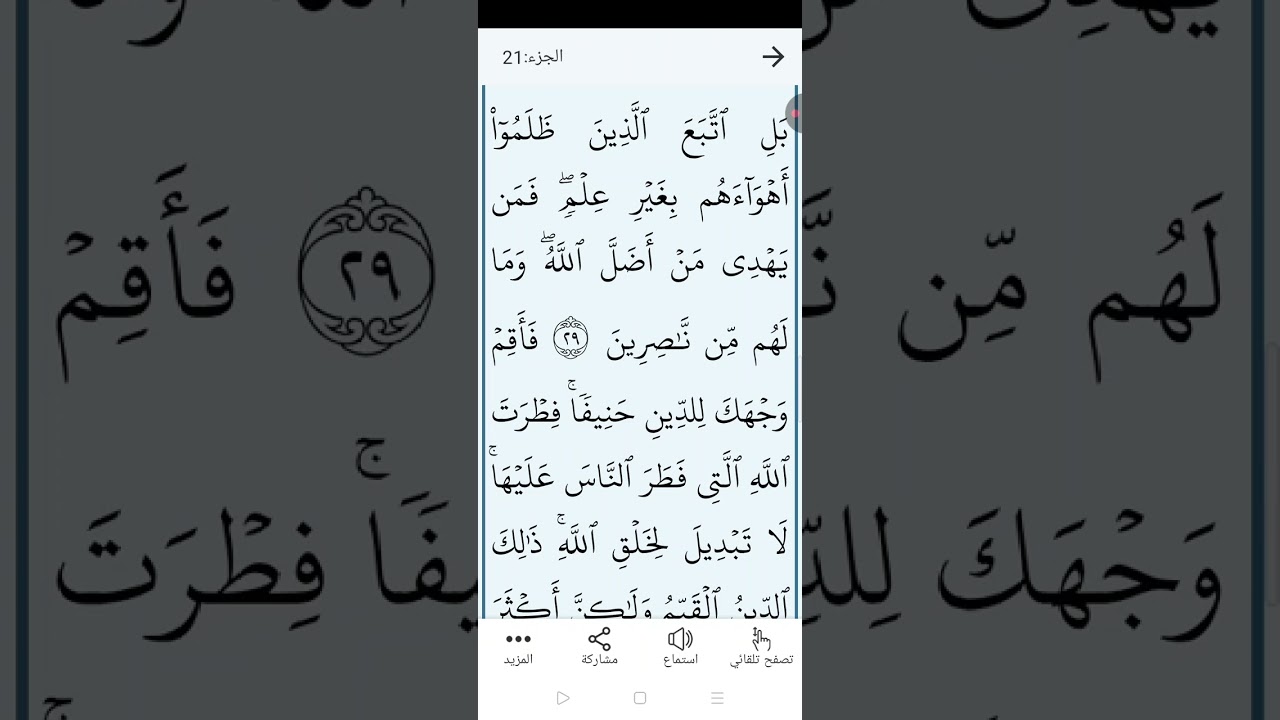 الجزء:21
بَلِ ٱتَّبَعَ ٱلَّذِينَ ظَلَمُوٓاْ
أَهۡوَآءَهُم بِغَيۡرِ عِلۡمٖۖ فَمَن
يَهۡدِي مَنۡ أَضَلَّ ٱللَّهُۖ وَمَا
لَهُم مِّن نَّـٰصِرِينَ ٢٩ فَأَقِمۡ
وَجۡهَكَ لِلدِّينِ حَنِيفٗاۚ فِطۡرَتَ
ٱللَّهِ ٱلَّتِي فَطَرَ ٱلنَّاسَ عَلَيۡهَاۚ
لَا تَبۡدِيلَ لِخَلۡقِ ٱللَّهِۚ ذَٰلِكَ
ٱلدِّينُ ٱلۡقَيِّمُ وَلَٰكِنَّ أَكۡثَرَ
تصفح تلقائي
استماع
مشاركة
المزيد